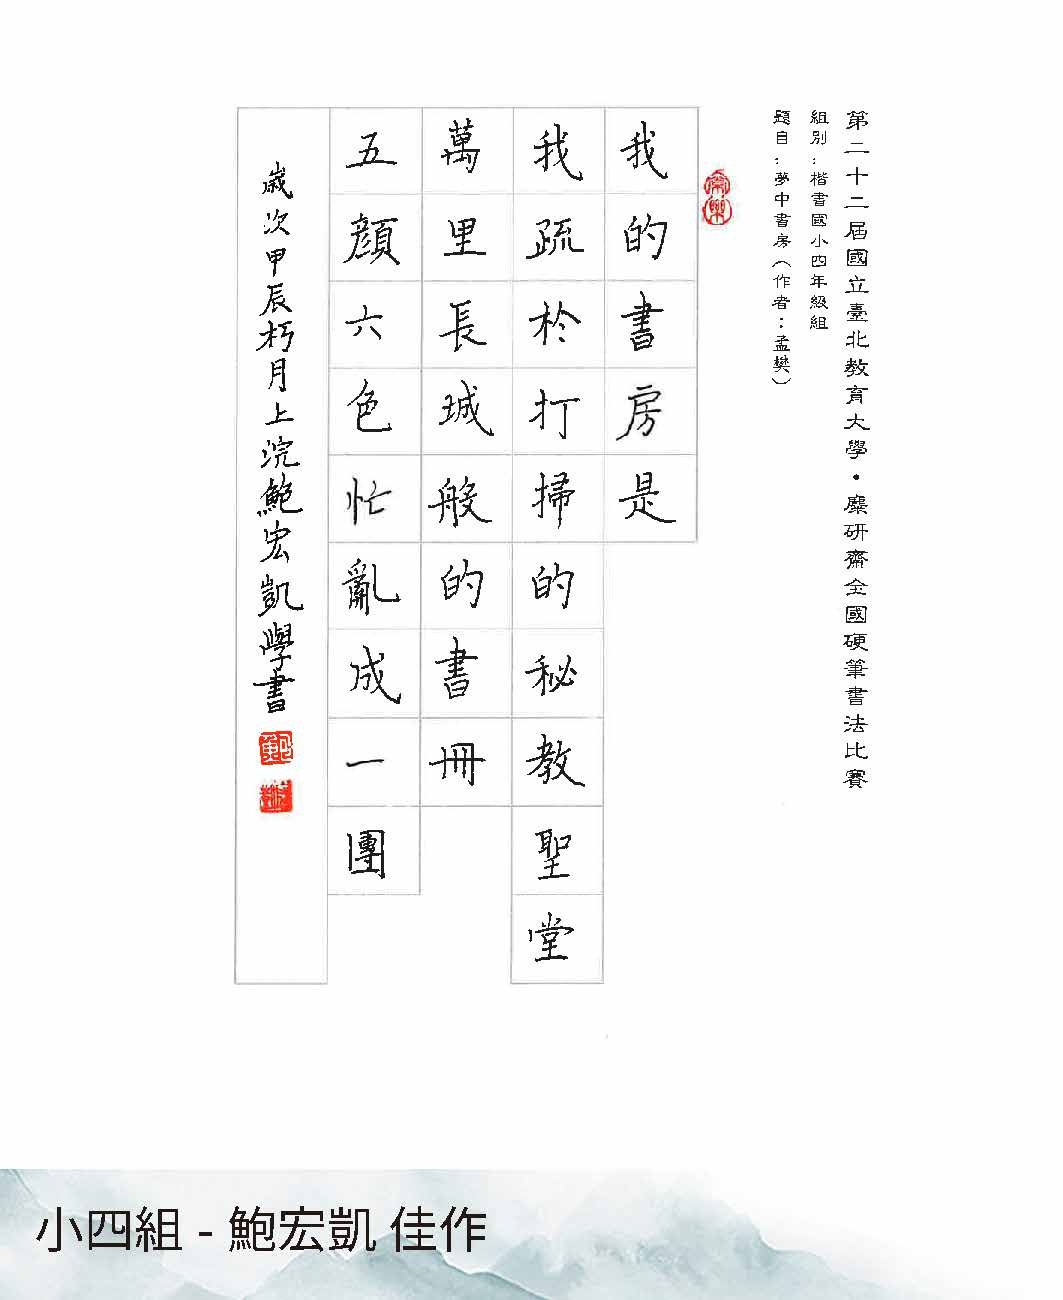 第二十二屆國立臺北教育大學・麋研齋全國硬筆書法比賽
組別：楷書國小四年級組
題目：夢中書房（作者：孟樊）
我的書房是
我疏於打掃的秘教聖堂
萬里長城般的書冊
五顏六色忙亂成一團
歲次甲辰杇月上浣鮑宏凱學書
小四組 - 鮑宏凱 佳作